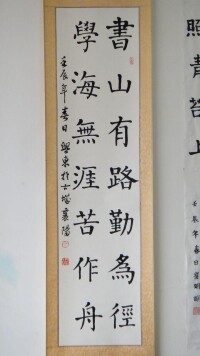 書山有路勤為徑
學海無涯苦作舟
壬辰年春日興東於古城襄陽
照青苔上
壬辰年春日